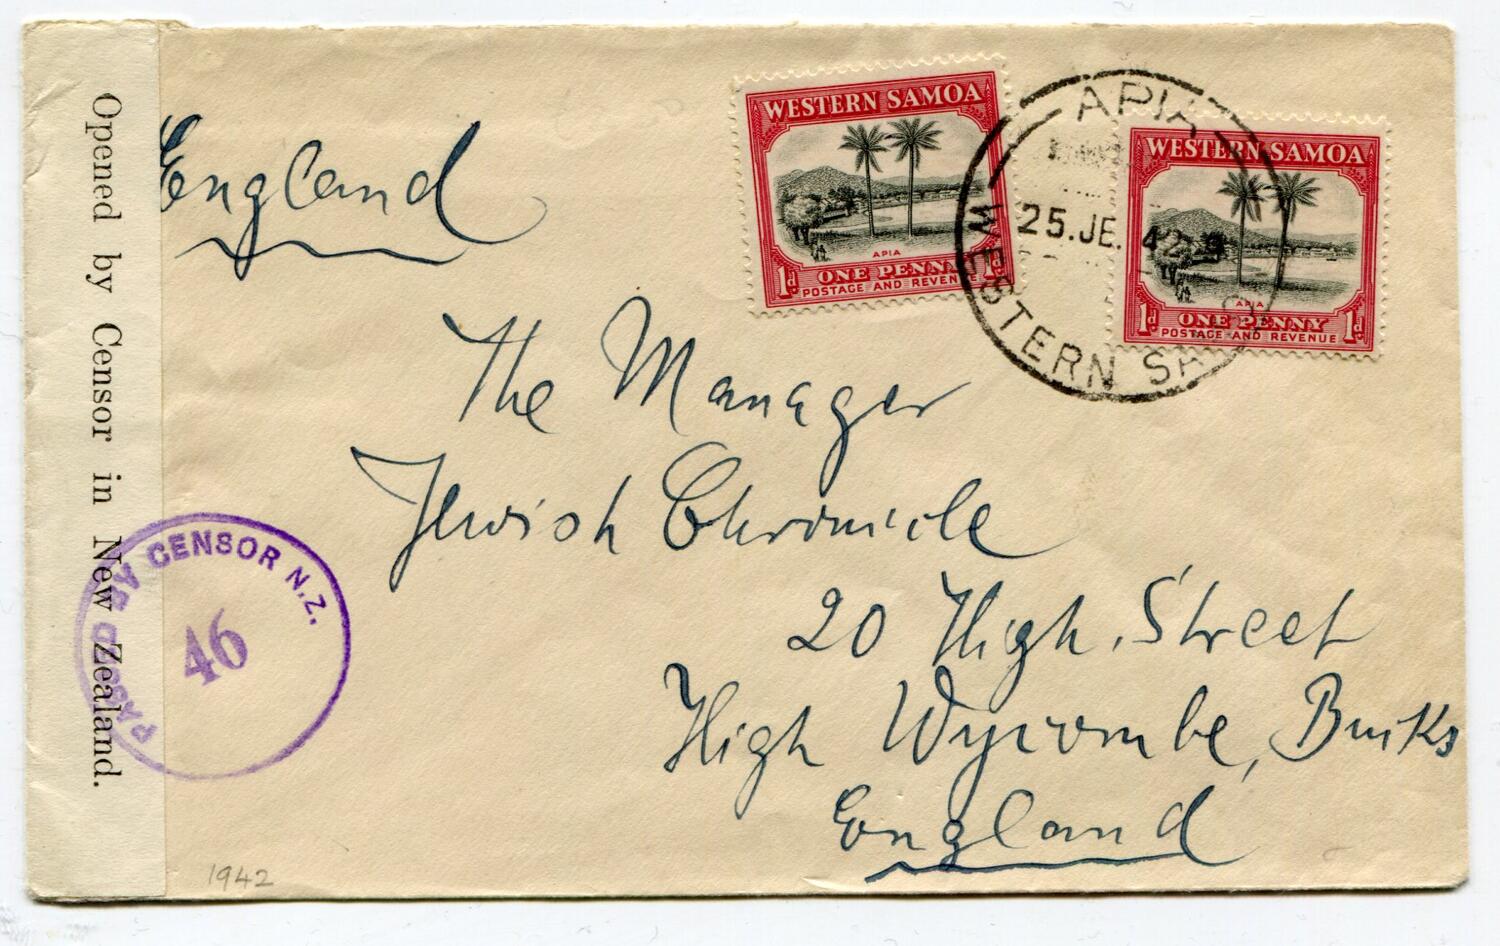 Opened by Censor in New Zealand.
England
WESTERN SAMOA
APIA
1d ONE PENNY 1d
POSTAGE AND REVENUE
APIA
25.JE.42
WESTERN SA
WESTERN SAMOA
APIA
1d ONE PENNY 1d
POSTAGE AND REVENUE
The Manager
Jewish Chronicle
20 High Street
High Wycombe, Bucks
England
PASSED BY CENSOR N.Z.
46
1942